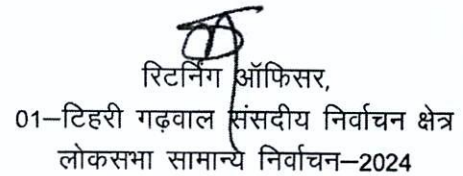 रिटर्निंग ऑफिसर,
01–टिहरी गढ़वाल संसदीय निर्वाचन क्षेत्र
लोकसभा सामान्य निर्वाचन–2024